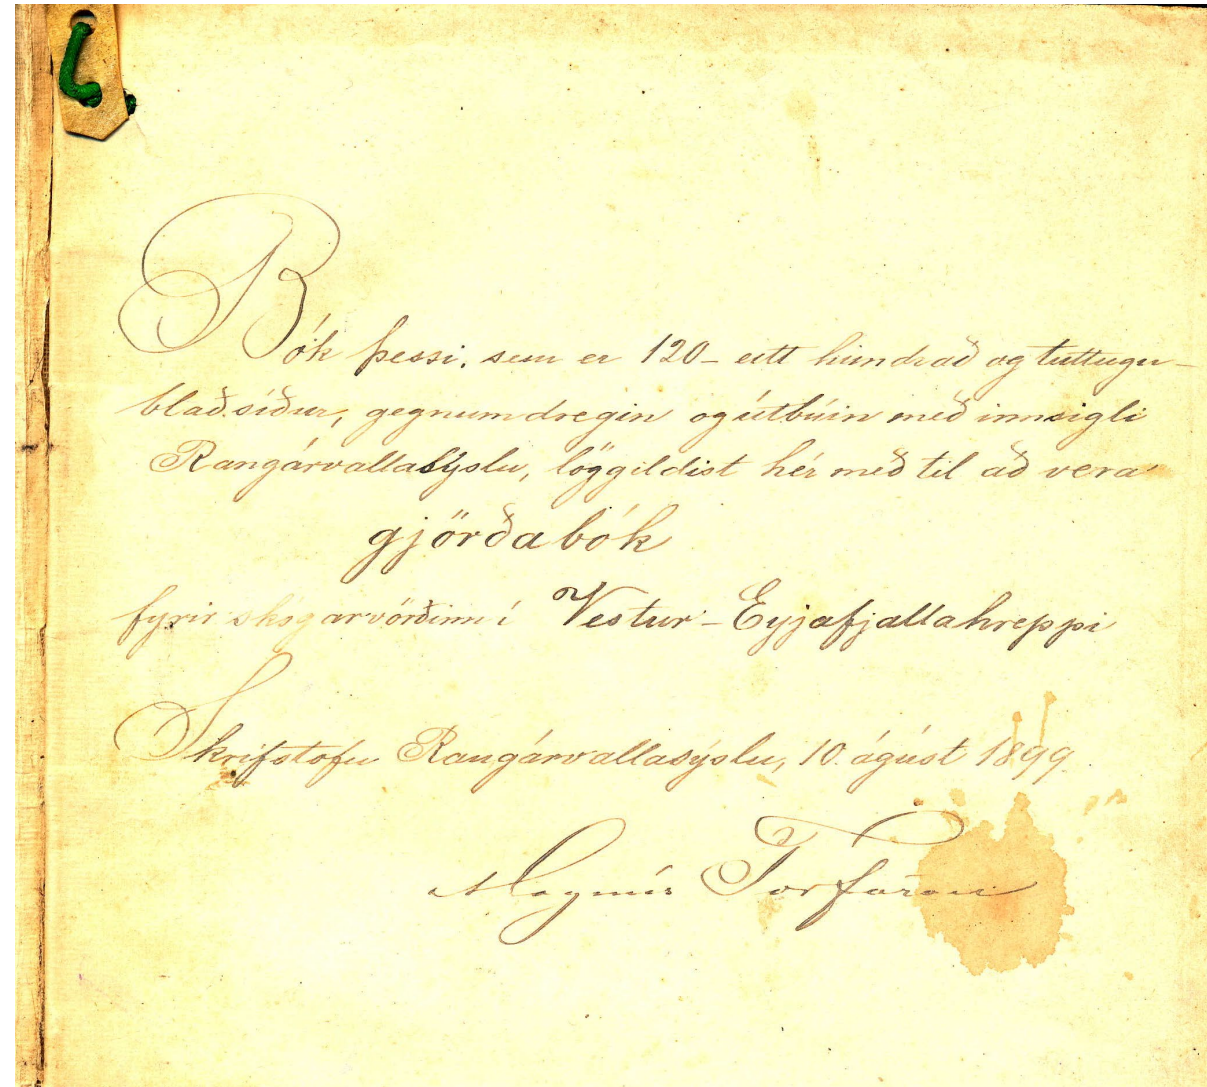 Bók þessi, sem er 120 - eitt hundrað og tuttugu -
blaðsíður, gegnumdregin og útbúin með innsigli
Rangárvallasýslu, löggildist hér með til að vera
gjörðabók
fyrir skógarvörðinn í Vestur-Eyjafjallahreppi
Skrifstofu Rangárvallasýslu, 10. ágúst 1899.
Magnús Torfason